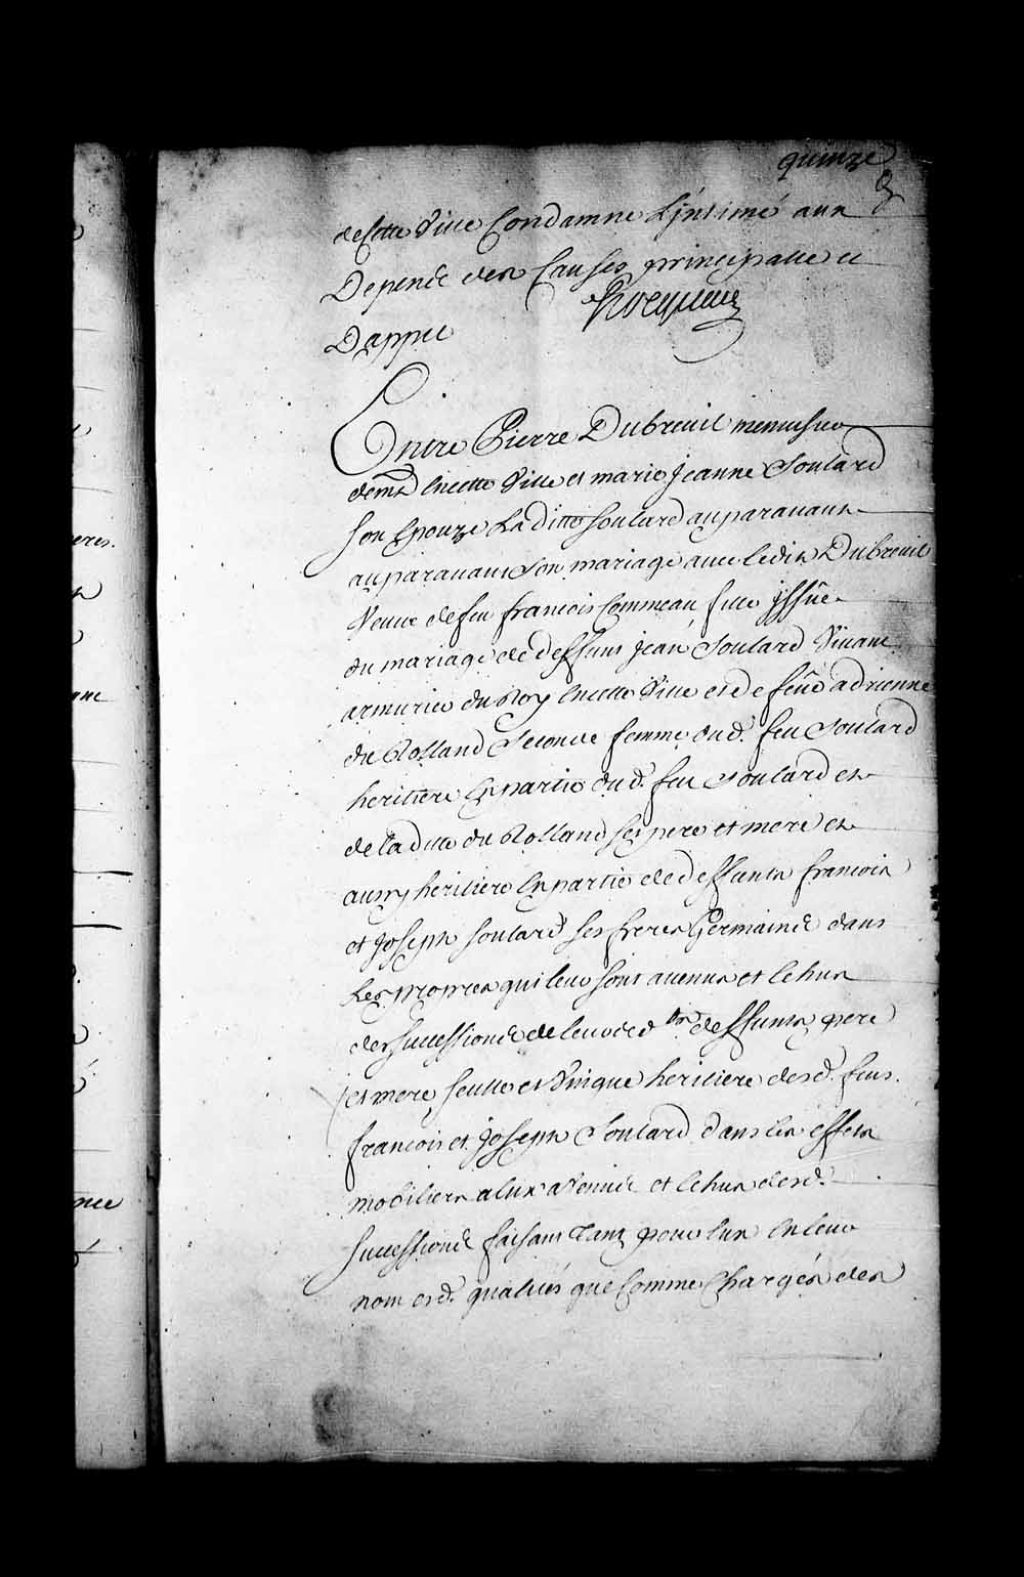 quinze
de cette Ville Condamne L'intimé aux
Depens des Causes principalle et
D'appel
Entre Pierre Dubreuil menuisier
demt en cette Ville et marie Jeanne Soulard
son Epouze La ditte Soulard auparavant
auparavant son mariage avec ledit Dubreuil
Veuve de feu francois Commeau fille issüe
du mariage de deffunt jean Soulard Vivant
armurier du Roy en cette Ville et de feüe adrienne
du Rolland Seconde femme dud. feu Soulard
heritiere En partie dud. feu Soulard et
de la ditte du Rolland ses pere et mere et
aussy heritiere En partie de deffunts francois
et Joseph Soulard ses freres Germains dans
Les propres qui leur sont avenus et Echus
des successions de leurs deffunts pere
et mere, seulle et Unique heritiere desd. feus
francois et Joseph Soulard dans les effets
mobiliers a Eux avenus et Echus desd.
successions faisant tant pour Eux En leur
nom esd. qualités que Comme Chargés des